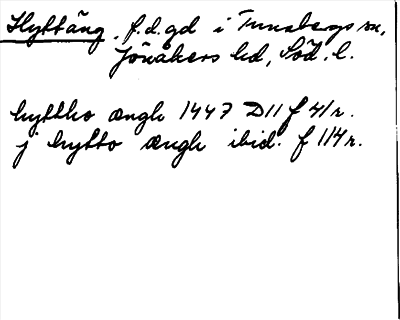 Hyttäng, f.d.gd i Tunabergs sn,
Jönåkers hd, Söd. l.
hyttho ængh 1447 D11 f 41r.
j hytto ængh ibid. f 114r.